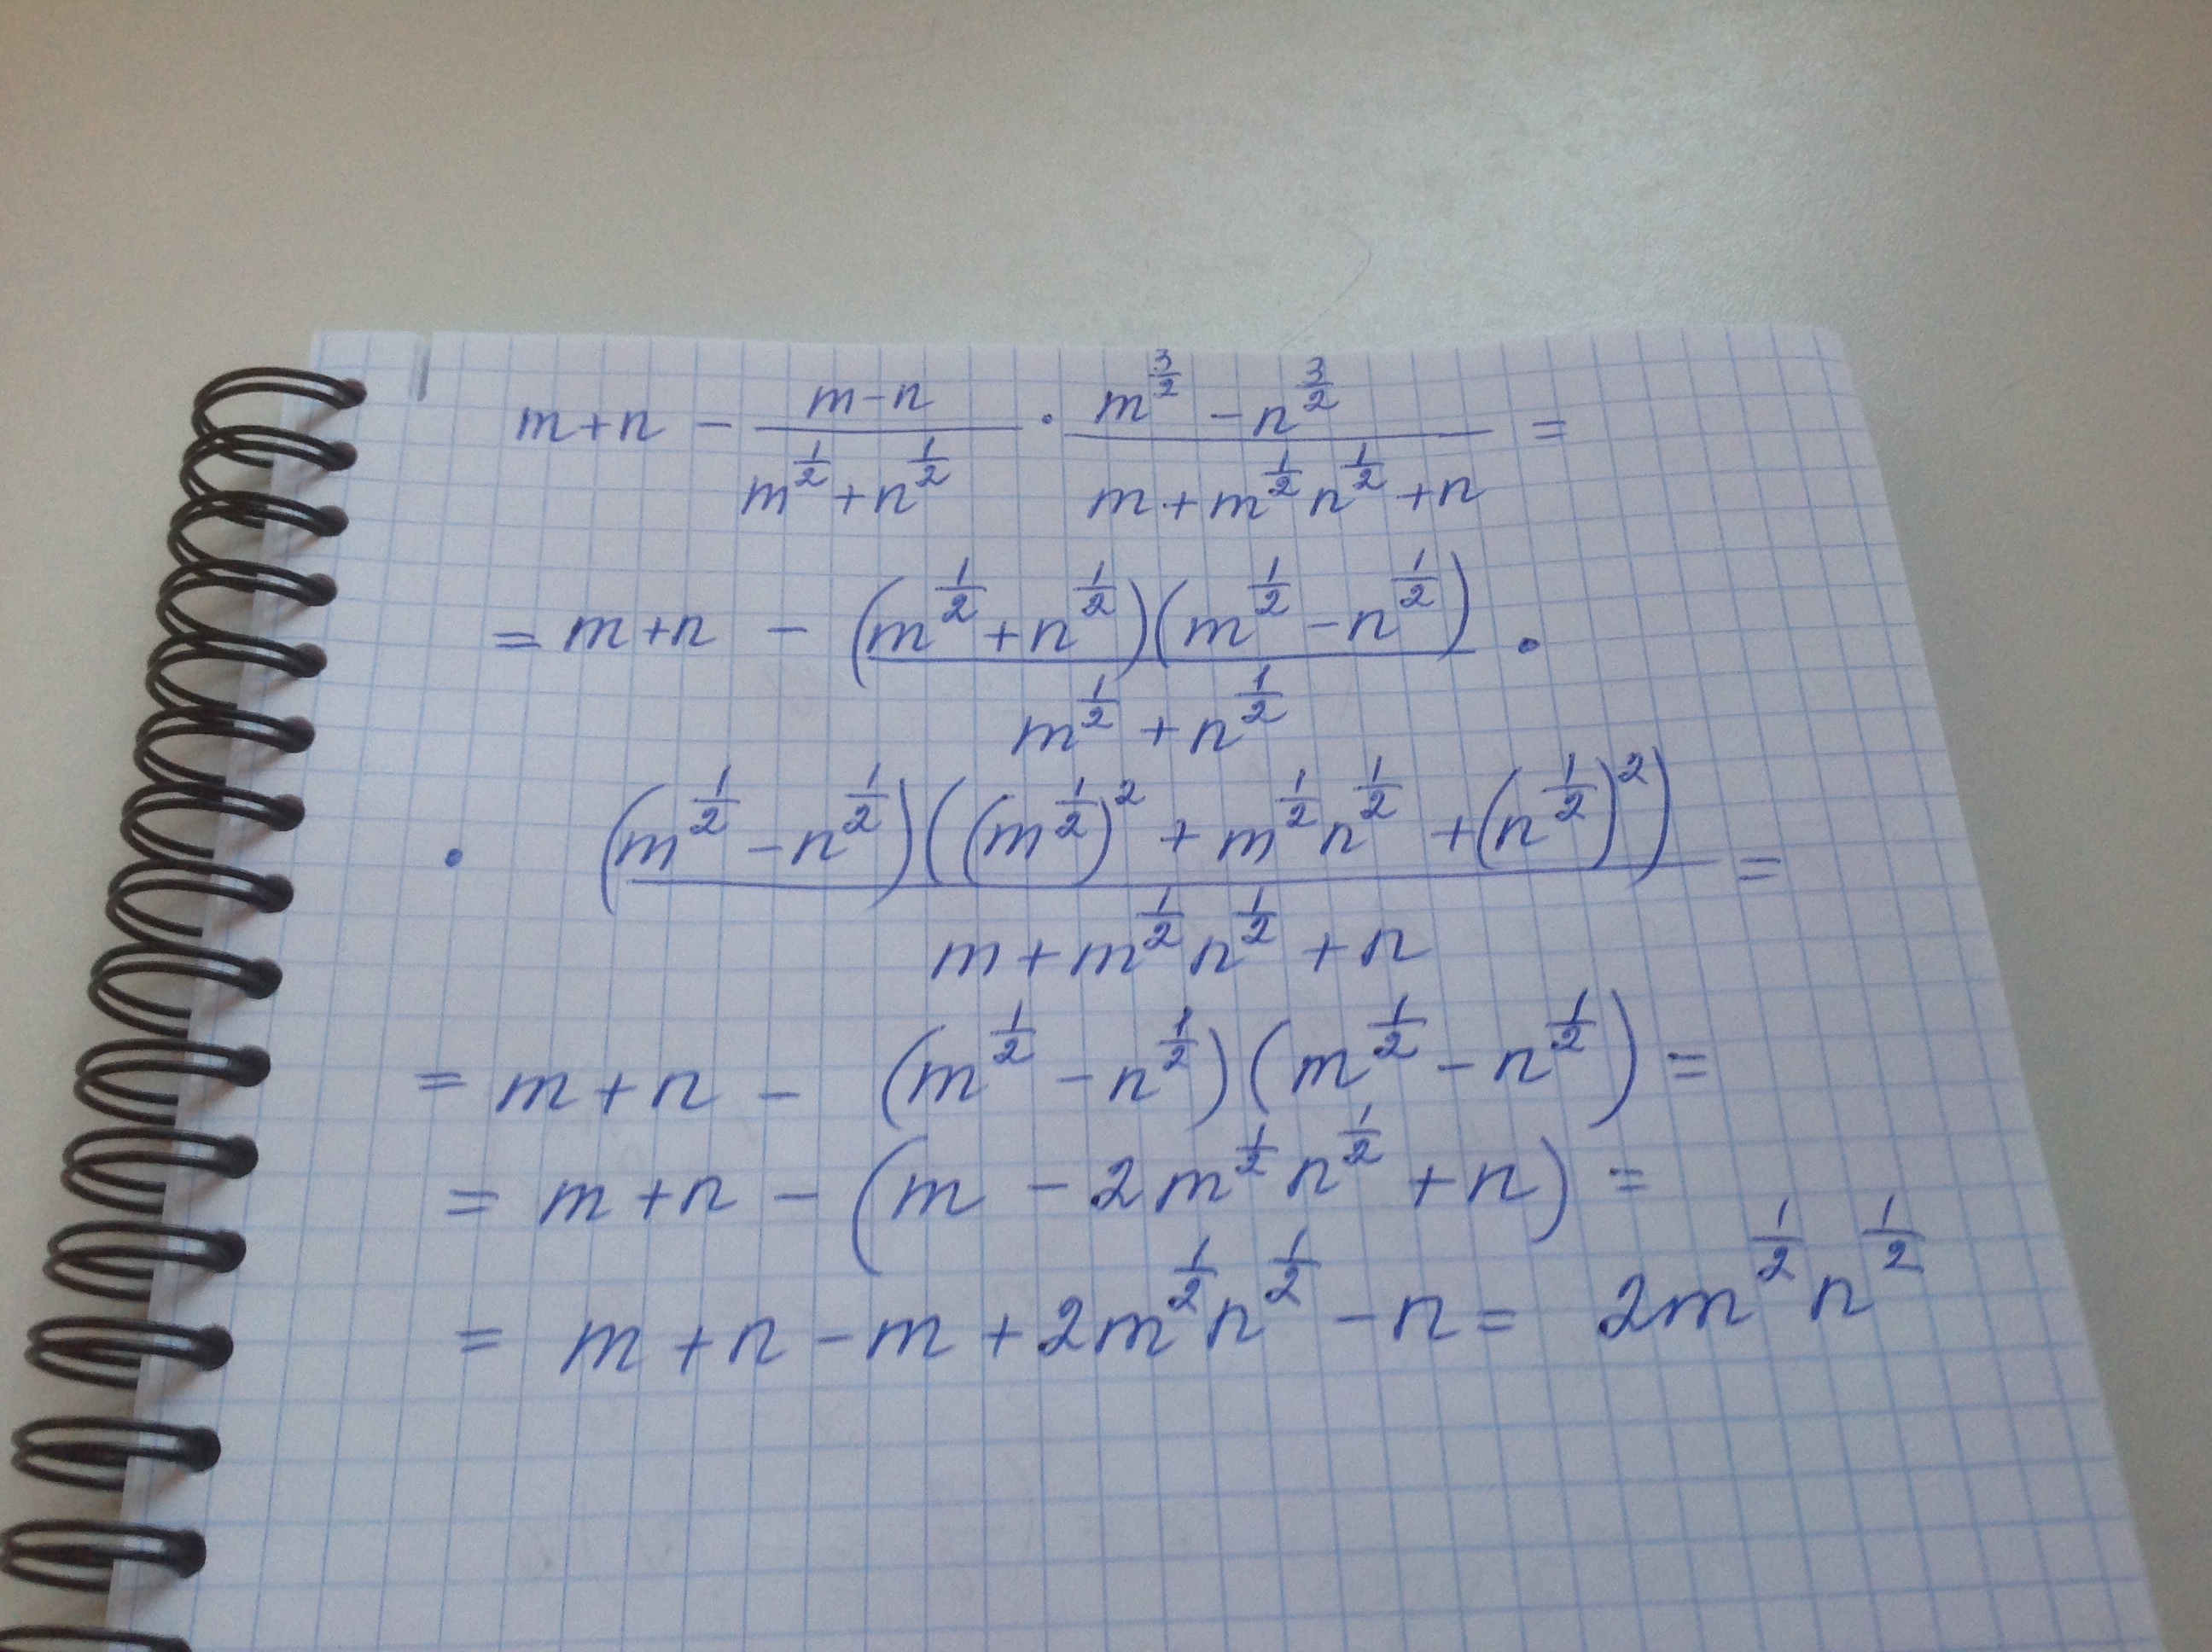 m+n - \frac{m-n}{m^{\frac{1}{2}}+n^{\frac{1}{2}}} \cdot \frac{m^{\frac{3}{2}}-n^{\frac{3}{2}}}{m+m^{\frac{1}{2}}n^{\frac{1}{2}}+n} =
= m+n - \frac{(m^{\frac{1}{2}}+n^{\frac{1}{2}})(m^{\frac{1}{2}}-n^{\frac{1}{2}})}{m^{\frac{1}{2}}+n^{\frac{1}{2}}} \cdot
\cdot \frac{(m^{\frac{1}{2}}-n^{\frac{1}{2}})((m^{\frac{1}{2}})^2+m^{\frac{1}{2}}n^{\frac{1}{2}}+(n^{\frac{1}{2}})^2)}{m+m^{\frac{1}{2}}n^{\frac{1}{2}}+n} =
= m+n - (m^{\frac{1}{2}}-n^{\frac{1}{2}})(m^{\frac{1}{2}}-n^{\frac{1}{2}}) =
= m+n - (m-2m^{\frac{1}{2}}n^{\frac{1}{2}}+n) =
= m+n-m+2m^{\frac{1}{2}}n^{\frac{1}{2}}-n = 2m^{\frac{1}{2}}n^{\frac{1}{2}}